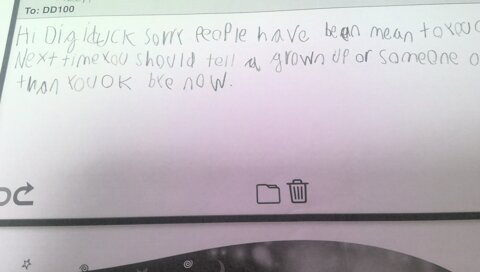 To: DD100
Hi Digiduck sorry people have been mean to you
Next time you should tell a grown up or someone
than you OK bye now.